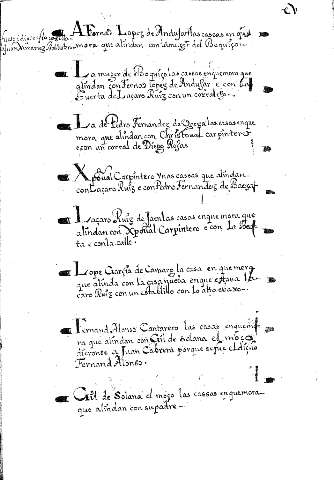 A Fernan Lopez de Andujar las cassas en q̃
mora que alindan con muger del Boquiço
La muger de Boquiço las cassas en que mora que
alindan con Fernan Lopez de Andujar e con la
huerta de Laçaro Ruiz con un corralejo
La de Pedro Fernandez de Baeça las casas en que
mora que alindan con Christoual carpintero
e con un corral de Diego Rojas
Xpoual Carpintero Vnas cassas que alindan
con Laçaro Ruiz e con Pedro Fernandez de Baeça
Laçaro Ruiz de Jaen las casas en que mora que
alindan con Xpoual Carpintero e con
e con la calle
Lope Garcia de Camara la casa en que mora
que alinda con la casa nueva en que estaua La
çaro Ruiz con un establillo con lo alto e vaxo
Fernand Alonso Cantarero las casas en que mo
ra que alindan con Gil de Solana el moço
dieronse a Juan Cabrera porque se fue el dicho
Fernand Alonso
Gil de Solana el moço las cassas en que mora
que alindan con su padre